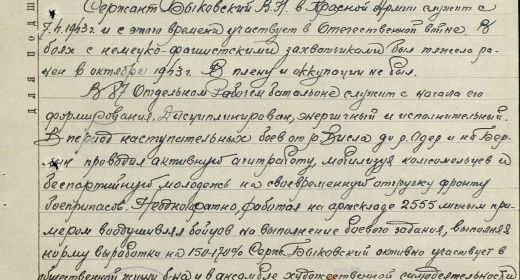 Сержант Быковский В.Н. в Красной Армии служит с
7.4.1943г. и с этого времени участвует в Отечественной войне. В
боях с немецко-фашистскими захватчиками был тяжело ра-
нен в октябре 1943г. В плену и оккупации не был.
В 87 Отдельном Рабочем батальоне служит с начала его
формирования. Дисциплинирован, энергичный и исполнительный.
В период наступательных боев от р. Висла до р. Одер и на Бер-
лин проводил активную агитработу, мобилизуя комсомольцев и
беспартийную молодежь на своевременную отгрузку фронту
боеприпасов. Неоднократно, работая на артскладе 2555 личным при-
мером воодушевлял бойцов на выполнение боевого задания, выполняя
норму выработки на 150-170% Серж. Быковский активно участвует в
общественной жизни б-на и в ансамбле художественной самодеятельности